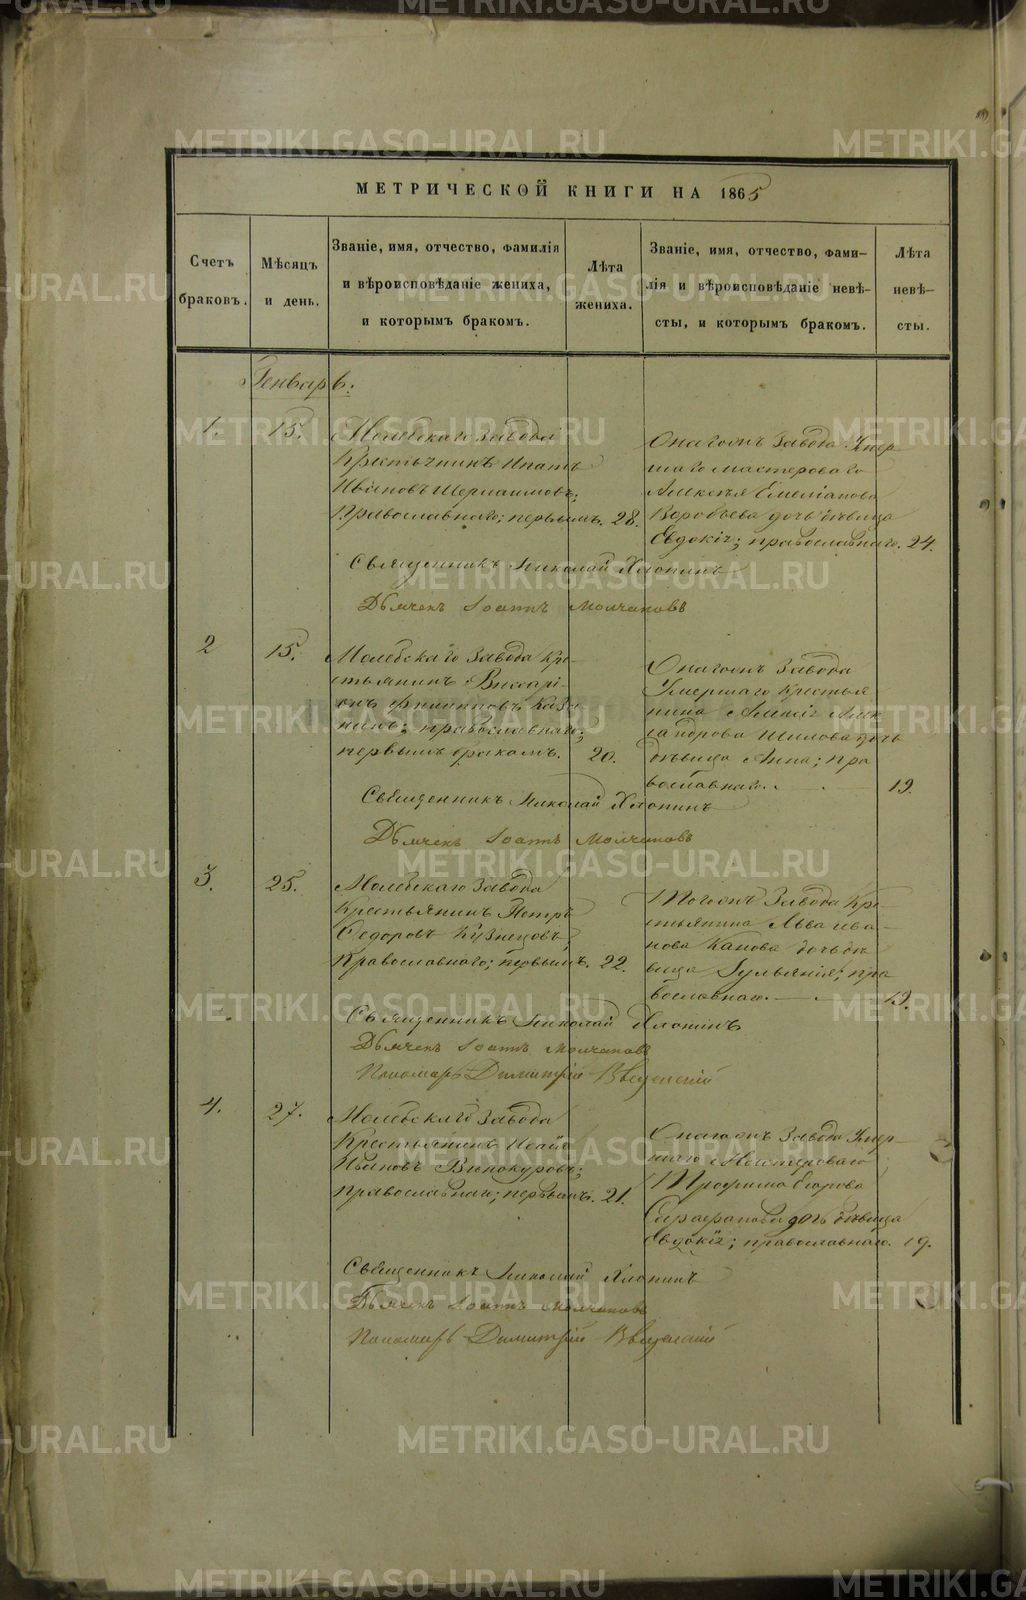 МЕТРИЧЕСКОЙ КНИГИ НА 1865
Счетъ браковъ.
Мѣсяцъ и день.
Званіе, имя, отчество, фамилія
и вѣроисповѣданіе жениха,
и которымъ бракомъ.
Лѣта жениха.
Званіе, имя, отчество, фами-
лія и вѣроисповѣданіе невѣ-
сты, и которымъ бракомъ.
Лѣта невѣ-
сты.
Генварь:
1. 15.
Молебскаго завода
Крестьянинъ Ипатъ
Ивановъ
Православнаго; первымъ. 28.
Онагожъ Завода Умер-
шаго мастероваго
Алексѣя Емеліанова
Воробьева дочь дѣвица
Евдокія; православнаго. 24.
Священникъ Николай Хлопинъ
Дьячекъ Іоаннъ Молчановъ
2 15.
Молебскаго Завода Кре-
стьянинъ Виссарі-
онъ Филипповъ
православнаго;
первымъ бракомъ. 20.
Онагожъ Завода
Умершаго Крестья
нина Алек
сандрова Шилова дочь
дѣвица Анна; пра
вославнаго. 19.
Священникъ Николай Хлопинъ
Дьячекъ Іоаннъ Молчановъ
3. 25.
Молебскаго Завода
Крестьянинъ Петръ
Федоровъ Кузнецовъ
Православнаго; первымъ. 22.
Тогожъ Завода Кре-
стьянина Льва Ива-
нова дочь дѣ
вица Гульянія; пра
вославнаго. 19.
Священникъ Николай Хлопинъ
Дьячекъ Іоаннъ Молчановъ
Пономарь Димитрій Введенскій
4. 27.
Молебскаго Завода
Крестьянинъ Исаія
Ивановъ Винокуровъ;
православнаго; первымъ. 21.
Онагожъ Завода Умер-
шаго Мастероваго
Трофима Егорова
дочь дѣвица
Евдокія; православнаго. 19.
Священникъ Николай Хлопинъ
Дьячекъ Іоаннъ Молчановъ
Пономарь Димитрій Введенскій
METRIKI.GASO-URAL.RU